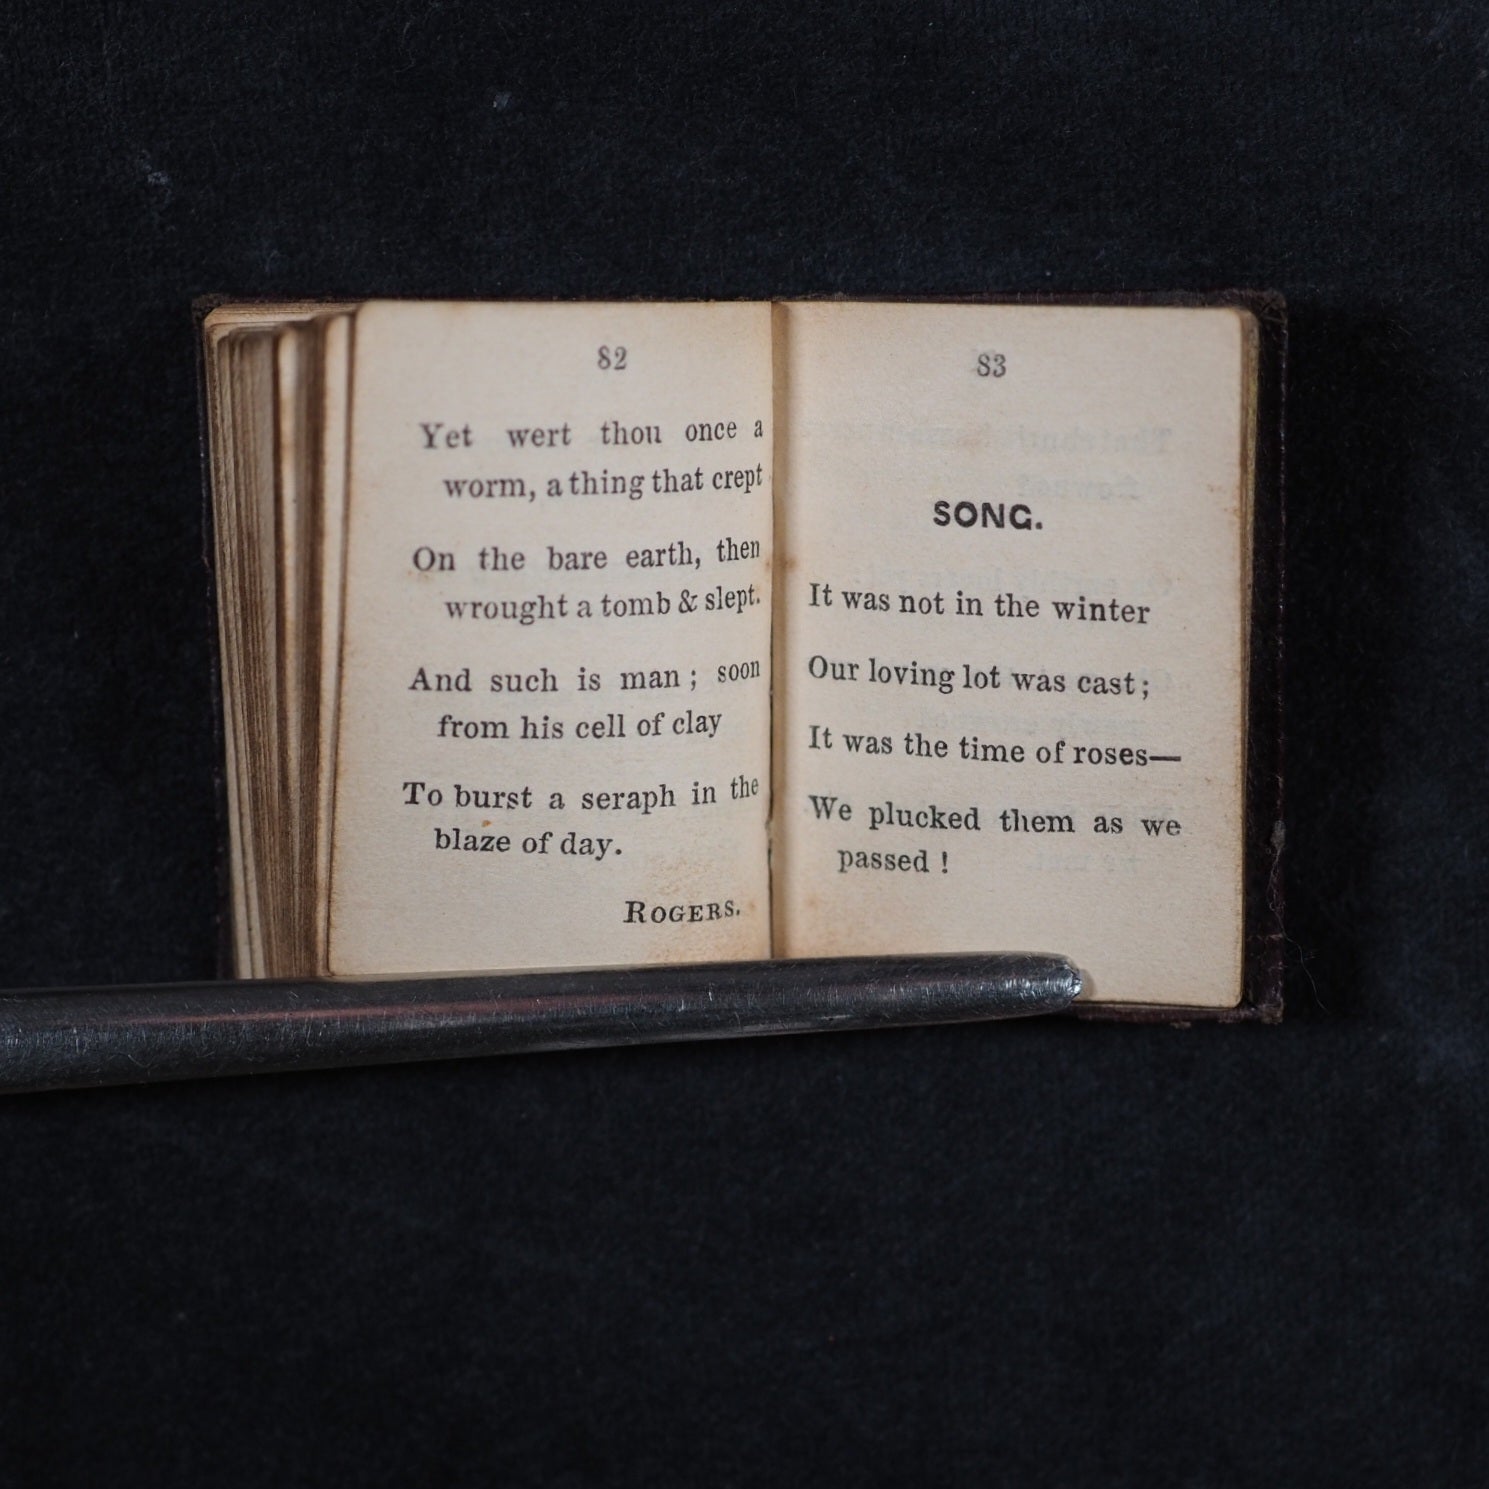 82
Yet wert thou once a
worm, a thing that crept
On the bare earth, then
wrought a tomb & slept.
And such is man; soon
from his cell of clay
To burst a seraph in the
blaze of day.
ROGERS.
83
SONG.
It was not in the winter
Our loving lot was cast;
It was the time of roses—
We plucked them as we
passed!